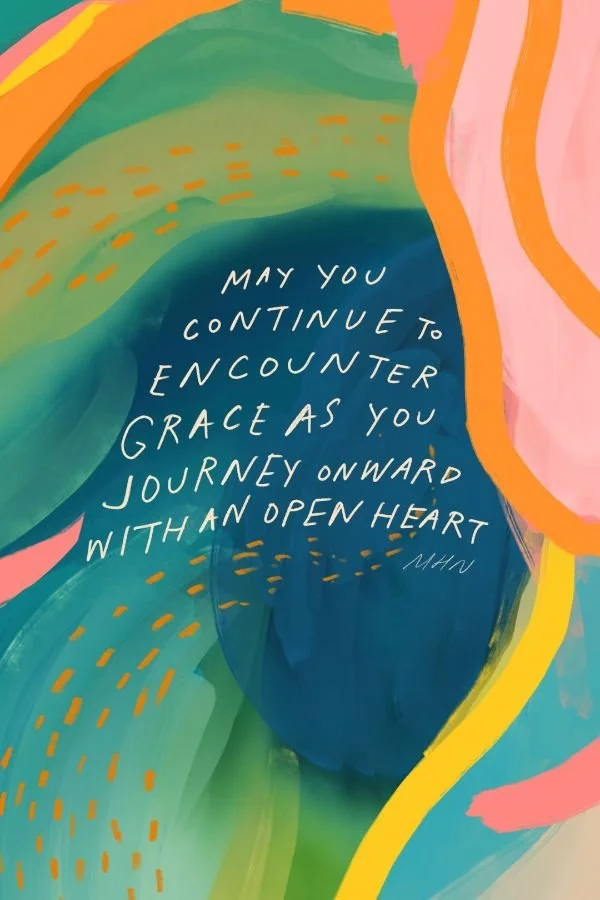 MAY YOU
CONTINUE TO
ENCOUNTER
GRACE AS YOU
JOURNEY ONWARD
WITH AN OPEN HEART
MHN